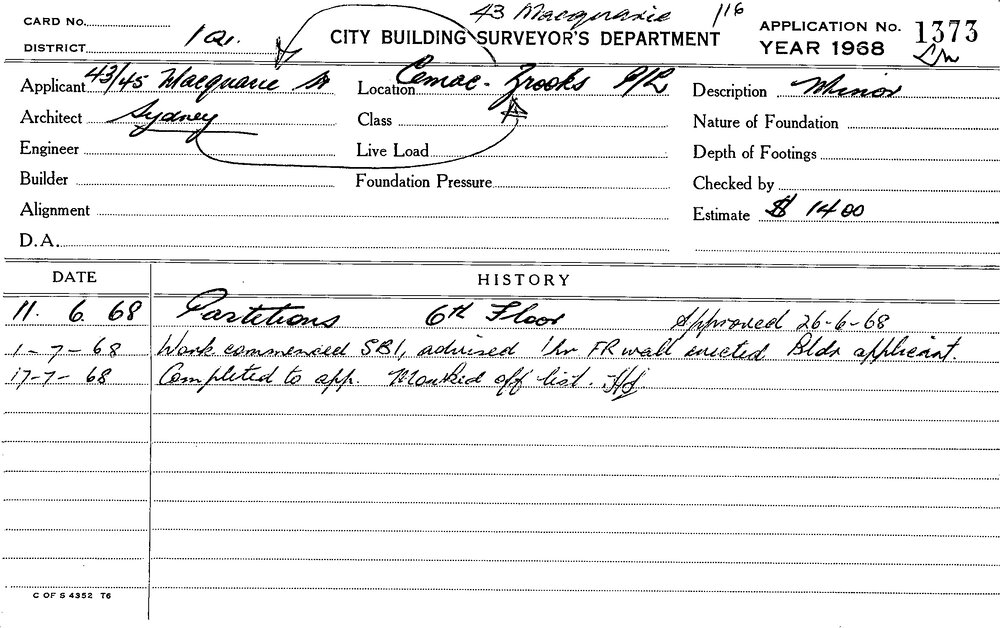 43 Macquarie 116
CARD No.
DISTRICT 1a.
CITY BUILDING SURVEYOR'S DEPARTMENT
APPLICATION No. 1373
YEAR 1968
Applicant 43/45 Macquarie St Location Cemac-Brooks P/L Description Minor
Architect Sydney Class Nature of Foundation
Engineer Live Load Depth of Footings
Builder Foundation Pressure Checked by
Alignment Estimate $ 1400
D.A.
DATE HISTORY
11. 6. 68 Partitions 6th Floor Approved 26-6-68
1-7-68 Work commenced SBI, advised 1hr FR wall erected Bldr applicant.
17-7-68 Completed to app. Marked off list.
C OF S 4352 T6